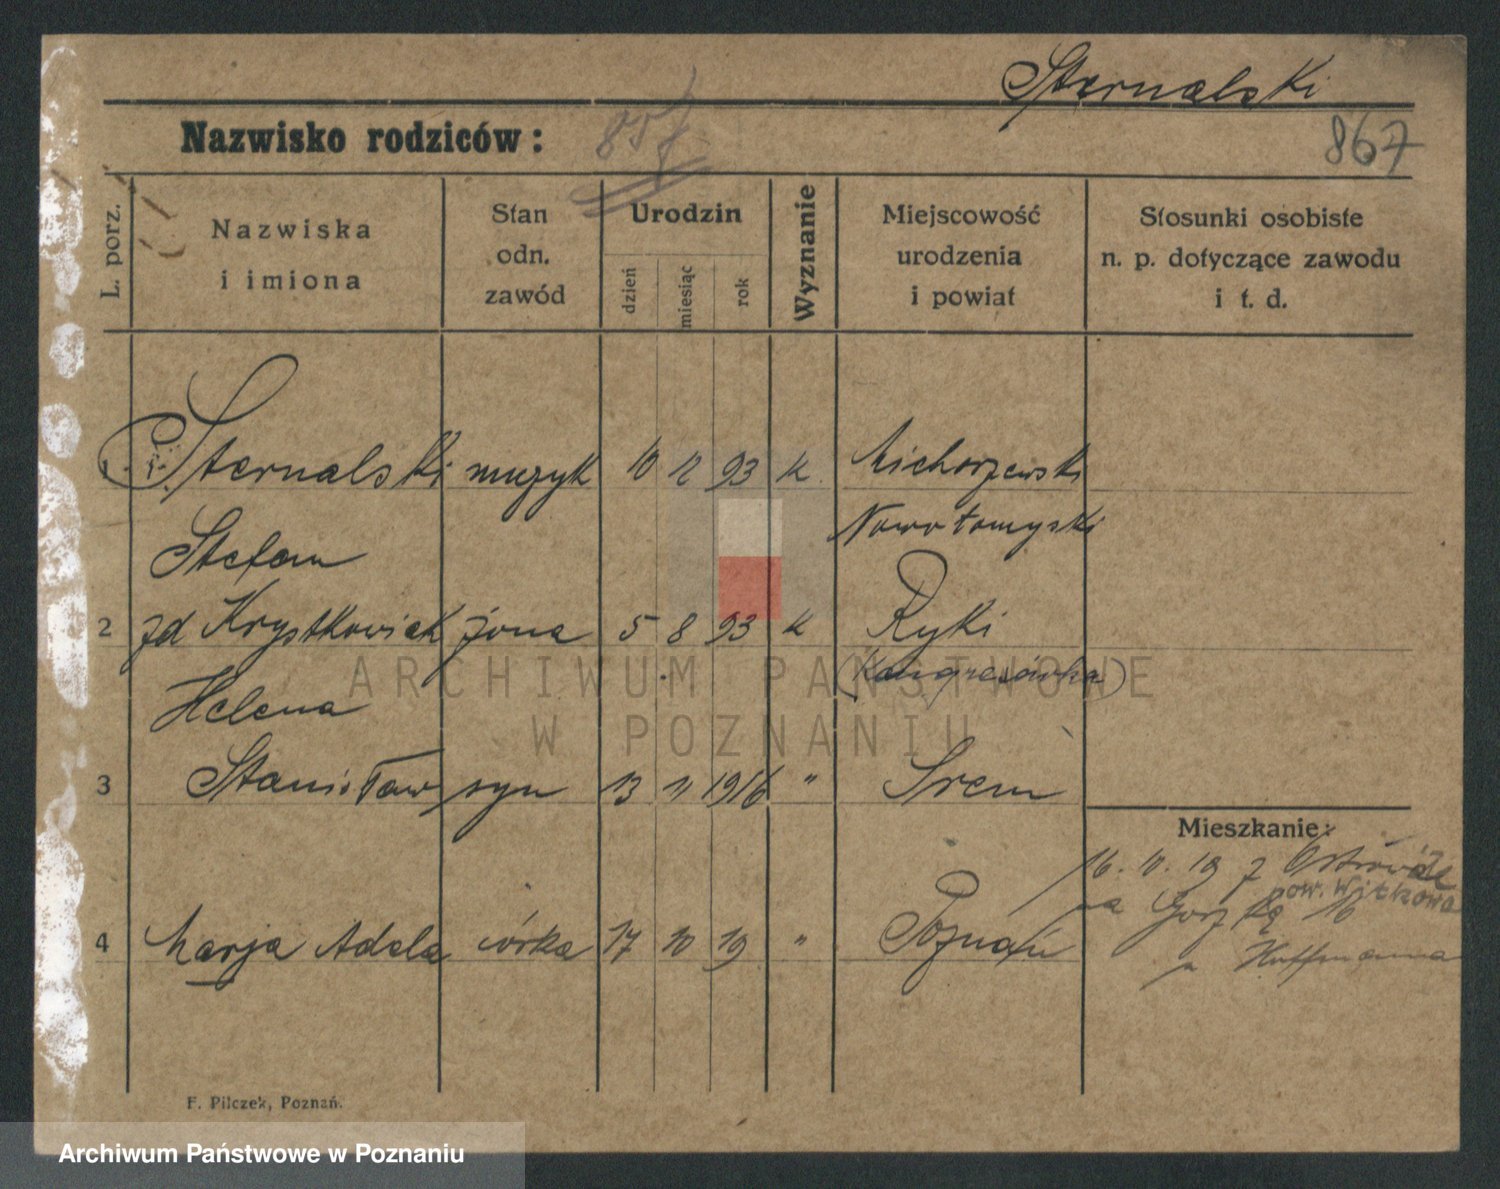 Sternalski
Nazwisko rodziców:
867
L. porz.
Nazwiska
i imiona
Stan
odn.
zawód
Urodzin
dzień
miesiąc
rok
Wyznanie
Miejscowość
urodzenia
i powiat
Stosunki osobiste
n. p. dotyczące zawodu
i t. d.
1. Sternalski muzyk 10 12 93 k Michorzewski
Stefan Nowotomyski
2 zd Krystkowiak żona 5 8 93 k Ryki
Helena (Kongresówka)
3 Stanisław syn 13 11 1916 " Srem
Mieszkanie:
16. 10. 19 z Ostrów
pow. Witkowo
na 16
4 Marja Adela córka 17 10 19 " Poznań
Hoffmanna
F. Pilczek, Poznań.
ARCHIWUM PAŃSTWOWE
W POZNANIU
Archiwum Państwowe w Poznaniu